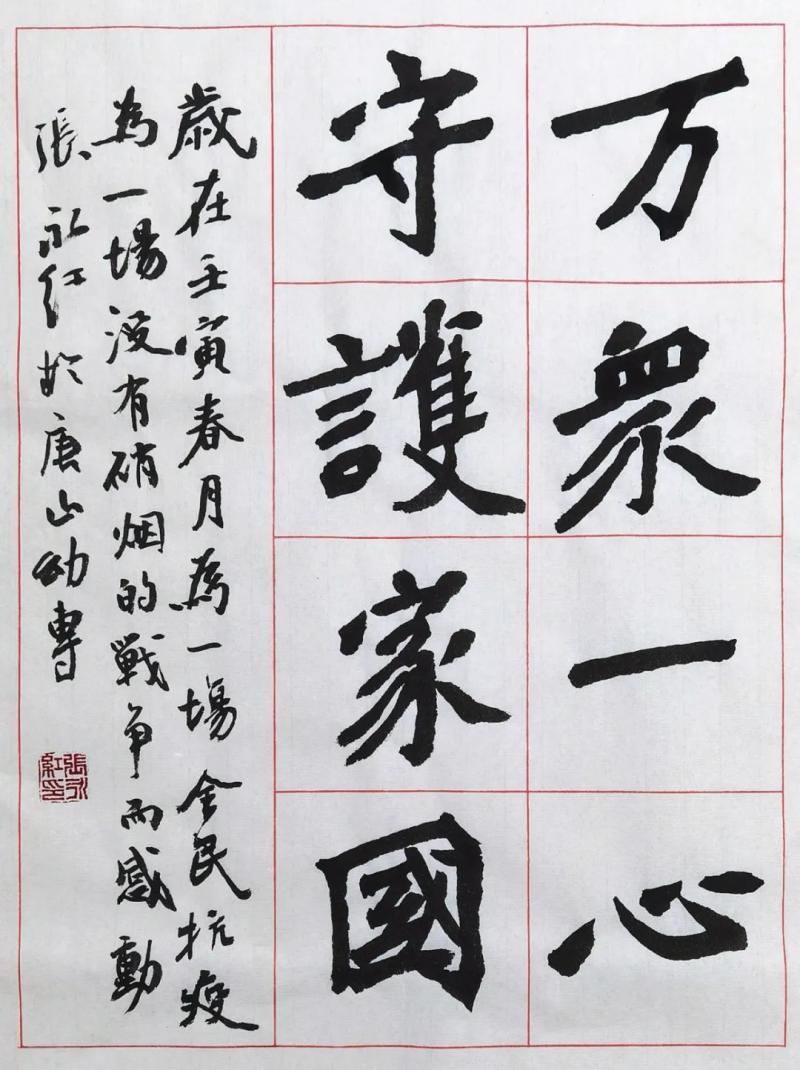 万衆一心
守護家國
歲在壬寅春月為一場全民抗疫
為一場没有硝烟的戰争而感動
張永红於唐山幼專
張永紅印